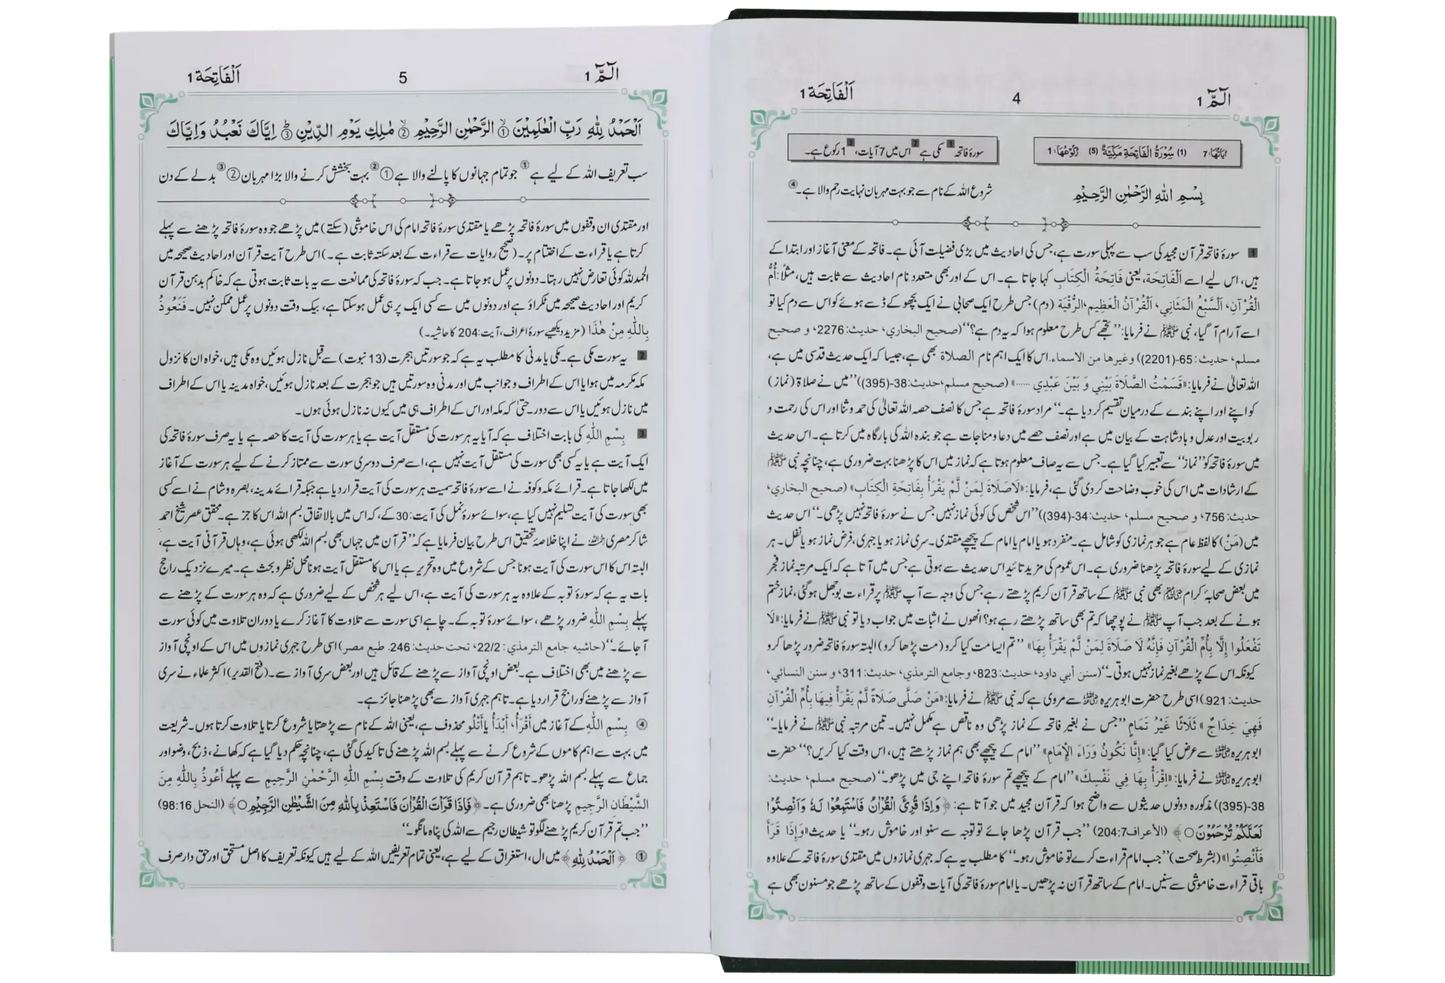 الٓمّٓ 1
4
اَلْفَاتِحَة 1
اٰيَاتُهَا: 7 (1) سُوْرَةُ الْفَاتِحَةِ مَكِّيَّةٌ (5) رُكُوْعُهَا: 1
سورۂ فاتحہ 1 مکی ہے 2 اس میں 7 آیات، 3 1 رکوع ہے۔
بِسْمِ اللّٰهِ الرَّحْمٰنِ الرَّحِيْمِ
شروع اللہ کے نام سے جو بہت مہربان نہایت رحم والا ہے۔ ④
1 سورۂ فاتحہ قرآن مجید کی سب سے پہلی سورت ہے، جس کی احادیث میں بڑی فضیلت آئی ہے۔ فاتحہ کے معنی آغاز اور ابتدا کے
ہیں، اس لیے اسے اَلْفَاتِحَة، یعنی فَاتِحَةُ الْكِتَابِ کہا جاتا ہے۔ اس کے اور بھی متعدد نام احادیث سے ثابت ہیں، مثلًا: أُمُّ
الْقُرْآنِ، اَلسَّبْعُ الْمَثَانِي، اَلْقُرْآنُ الْعَظِيم، الرُّقْيَة (دم) جس طرح ایک صحابی نے ایک بچھو کے ڈسے ہوئے کو اس سے دم کیا تو
اسے آرام آ گیا، نبی ﷺ نے فرمایا: ’’تجھے کس طرح معلوم ہوا کہ یہ دم ہے؟‘‘ (صحيح البخاري، حديث: 2276، و صحيح
مسلم، حديث: 65-(2201)) وغيرها من الاسماء. اس کا ایک اہم نام الصلاة بھی ہے، جیسا کہ ایک حدیث قدسی میں ہے،
اللہ تعالیٰ نے فرمایا: «قَسَمْتُ الصَّلَاةَ بَيْنِي وَ بَيْنَ عَبْدِي .....» (صحيح مسلم، حديث: 38-(395)) ’’میں نے صلاة (نماز)
کو اپنے اور اپنے بندے کے درمیان تقسیم کر دیا ہے۔‘‘ مراد سورۂ فاتحہ ہے جس کا نصف حصہ اللہ تعالیٰ کی حمد و ثنا اور اس کی رحمت و
ربوبیت اور عدل و بادشاہت کے بیان میں ہے اور نصف حصے میں دعا و مناجات ہے جو بندہ اللہ کی بارگاہ میں کرتا ہے۔ اس حدیث
میں سورۂ فاتحہ کو ’’نماز‘‘ سے تعبیر کیا گیا ہے۔ جس سے یہ صاف معلوم ہوتا ہے کہ نماز میں اس کا پڑھنا بہت ضروری ہے، چنانچہ نبی ﷺ
کے ارشادات میں اس کی خوب وضاحت کر دی گئی ہے، فرمایا: «لَا صَلَاةَ لِمَنْ لَّمْ يَقْرَأْ بِفَاتِحَةِ الْكِتَابِ» (صحيح البخاري،
حديث: 756، و صحيح مسلم، حديث: 34-(394)) ’’اس شخص کی کوئی نماز نہیں جس نے سورۂ فاتحہ نہیں پڑھی۔‘‘ اس حدیث
میں (مَنْ) کا لفظ عام ہے جو ہر نمازی کو شامل ہے۔ منفرد ہو یا امام یا امام کے پیچھے مقتدی۔ سری نماز ہو یا جہری، فرض نماز ہو یا نفل۔ ہر
نمازی کے لیے سورۂ فاتحہ پڑھنا ضروری ہے۔ اس عموم کی مزید تائید اس حدیث سے ہوتی ہے جس میں آتا ہے کہ ایک مرتبہ نماز فجر
میں بعض صحابۂ کرام بھی نبی ﷺ کے ساتھ قرآن کریم پڑھتے رہے جس کی وجہ سے آپ ﷺ پر قراءت بوجھل ہو گئی، نماز ختم
ہونے کے بعد جب آپ ﷺ نے پوچھا کہ تم بھی ساتھ پڑھتے رہے ہو؟ انھوں نے اثبات میں جواب دیا تو نبی ﷺ نے فرمایا: «لَا
تَفْعَلُوا إِلَّا بِأُمِّ الْقُرْآنِ فَإِنَّهُ لَا صَلَاةَ لِمَنْ لَّمْ يَقْرَأْ بِهَا» ’’تم ایسا مت کیا کرو (مت پڑھا کرو) البتہ سورۂ فاتحہ ضرور پڑھا کرو
کیونکہ اس کے پڑھے بغیر نماز نہیں ہوتی۔‘‘ (سنن أبي داود، حديث: 823، وجامع الترمذي، حديث: 311، و سنن النسائي،
حديث: 921) اسی طرح حضرت ابو ہریرہ سے مروی ہے کہ نبی ﷺ نے فرمایا: «مَنْ صَلّٰى صَلَاةً لَّمْ يَقْرَأْ فِيهَا بِأُمِّ الْقُرْآنِ
فَهِيَ خِدَاجٌ» ثَلَاثًا غَيْرُ تَمَامٍ ’’جس نے بغیر فاتحہ کے نماز پڑھی وہ ناقص ہے مکمل نہیں۔ تین مرتبہ نبی ﷺ نے فرمایا۔‘‘
ابو ہریرہ سے عرض کیا گیا: «إِنَّا نَكُونُ وَرَاءَ الْإِمَامِ» ’’امام کے پیچھے بھی ہم نماز پڑھتے ہیں، اس وقت کیا کریں؟‘‘ حضرت
ابو ہریرہ نے فرمایا: «اِقْرَأْ بِهَا فِي نَفْسِكَ» ’’امام کے پیچھے تم سورۂ فاتحہ اپنے جی میں پڑھو۔‘‘ (صحيح مسلم، حديث:
38-(395)) مذکورہ دونوں حدیثوں سے واضح ہوا کہ قرآن مجید میں جو آتا ہے: ﴿وَاِذَا قُرِئَ الْقُرْاٰنُ فَاسْتَمِعُوْا لَهٗ وَاَنْصِتُوْا
لَعَلَّكُمْ تُرْحَمُوْنَ ○﴾ (الأعراف 204:7) ’’جب قرآن پڑھا جائے تو توجہ سے سنو اور خاموش رہو۔‘‘ یا حدیث «وَإِذَا قَرَأَ
فَأَنْصِتُوا» (بشرط صحت) ’’جب امام قراءت کرے تو خاموش رہو۔‘‘ کا مطلب یہ ہے کہ جہری نمازوں میں مقتدی سورۂ فاتحہ کے علاوہ
باقی قراءت خاموشی سے سنیں۔ امام کے ساتھ قرآن نہ پڑھیں۔ یا امام سورۂ فاتحہ کی آیات وقفوں کے ساتھ پڑھے جو مسنون بھی ہے
الٓمّٓ 1
5
اَلْفَاتِحَة 1
اَلْحَمْدُ لِلّٰهِ رَبِّ الْعٰلَمِيْنَ ① الرَّحْمٰنِ الرَّحِيْمِ ② مٰلِكِ يَوْمِ الدِّيْنِ ③ اِيَّاكَ نَعْبُدُ وَاِيَّاكَ
سب تعریف اللہ کے لیے ہے ① جو تمام جہانوں کا پالنے والا ہے ① ② بہت بخشش کرنے والا بڑا مہربان ② ③ بدلے کے دن
اور مقتدی ان وقفوں میں سورۂ فاتحہ پڑھے یا مقتدی سورۂ فاتحہ امام کی اس خاموشی (سکتے) میں پڑھے جو وہ سورۂ فاتحہ پڑھنے سے پہلے
کرتا ہے یا قراءت کے اختتام پر۔ (صحیح روایات سے قراءت کے بعد سکتہ ثابت ہے۔) اس طرح آیت قرآن اور احادیث صحیحہ میں
الحمد للہ کوئی تعارض نہیں رہتا۔ دونوں پر عمل ہو جاتا ہے۔ جب کہ سورۂ فاتحہ کی ممانعت سے یہ بات ثابت ہوتی ہے کہ خاکم بدہن قرآن
کریم اور احادیث صحیحہ میں ٹکراؤ ہے اور دونوں میں سے کسی ایک پر ہی عمل ہو سکتا ہے، بیک وقت دونوں پر عمل ممکن نہیں۔ فَنَعُوذُ
بِاللّٰهِ مِنْ هٰذَا (مزید دیکھیے سورۂ اعراف، آیت: 204 کا حاشیہ۔)
2 یہ سورت مکی ہے۔ مکی یا مدنی کا مطلب یہ ہے کہ جو سورتیں ہجرت (13 نبوت) سے قبل نازل ہوئیں وہ مکی ہیں، خواہ ان کا نزول
مکہ مکرمہ میں ہوا یا اس کے اطراف و جوانب میں اور مدنی وہ سورتیں ہیں جو ہجرت کے بعد نازل ہوئیں، خواہ مدینہ یا اس کے اطراف
میں نازل ہوئیں یا اس سے دور۔ حتیٰ کہ مکہ اور اس کے اطراف ہی میں کیوں نہ نازل ہوئی ہوں۔
3 بِسْمِ اللّٰهِ کی بابت اختلاف ہے کہ آیا یہ ہر سورت کی مستقل آیت ہے یا ہر سورت کی آیت کا حصہ ہے یا یہ صرف سورۂ فاتحہ کی
ایک آیت ہے یا یہ کسی بھی سورت کی مستقل آیت نہیں ہے، اسے صرف دوسری سورت سے ممتاز کرنے کے لیے ہر سورت کے آغاز
میں لکھا جاتا ہے۔ قرائے مکہ و کوفہ نے اسے سورۂ فاتحہ سمیت ہر سورت کی آیت قرار دیا ہے جبکہ قرائے مدینہ، بصرہ و شام نے اسے کسی
بھی سورت کی آیت تسلیم نہیں کیا ہے، سوائے سورۂ نمل کی آیت: 30 کے، کہ اس میں بالاتفاق بسم اللہ اس کا جز ہے۔ محقق عصر شیخ احمد
شاکر مصری نے اپنا خلاصۂ تحقیق اس طرح بیان فرمایا ہے کہ ’’قرآن میں جہاں بھی بسم اللہ لکھی ہوئی ہے، وہاں قرآنی آیت ہے،
البتہ اس کا اس سورت کی آیت ہونا جس کے شروع میں وہ تحریر ہے یا اس کا مستقل آیت ہونا محل نظر و بحث ہے۔ میرے نزدیک راجح
بات یہ ہے کہ سورۂ توبہ کے علاوہ یہ ہر سورت کی آیت ہے، اس لیے ہر شخص کے لیے ضروری ہے کہ وہ ہر سورت کے پڑھنے سے
پہلے بِسْمِ اللّٰهِ ضرور پڑھے، سوائے سورۂ توبہ کے۔ چاہے اسی سورت سے تلاوت کا آغاز کرے یا دوران تلاوت میں کوئی سورت
آ جائے۔‘‘ (حاشيه جامع الترمذي: 22/2، تحت حديث: 246. طبع مصر) اسی طرح جہری نمازوں میں اس کے اونچی آواز
سے پڑھنے میں بھی اختلاف ہے۔ بعض اونچی آواز سے پڑھنے کے قائل ہیں اور بعض سری آواز سے۔ (فتح القدیر) اکثر علماء نے سری
آواز سے پڑھنے کو راجح قرار دیا ہے۔ تاہم جہری آواز سے بھی پڑھنا جائز ہے۔
④ بِسْمِ اللّٰهِ کے آغاز میں أَقْرَأُ، أَبْدَأُ یا أَتْلُو محذوف ہے، یعنی اللہ کے نام سے پڑھتا یا شروع کرتا یا تلاوت کرتا ہوں۔ شریعت
میں بہت سے اہم کاموں کے شروع کرنے سے پہلے بسم اللہ پڑھنے کی تاکید کی گئی ہے، چنانچہ حکم دیا گیا ہے کہ کھانے، ذبح، وضو اور
جماع سے پہلے بسم اللہ پڑھو۔ تاہم قرآن کریم کی تلاوت کے وقت بِسْمِ اللّٰهِ الرَّحْمٰنِ الرَّحِيمِ سے پہلے أَعُوذُ بِاللّٰهِ مِنَ
الشَّيْطَانِ الرَّجِيمِ پڑھنا بھی ضروری ہے۔ ﴿فَاِذَا قَرَاْتَ الْقُرْاٰنَ فَاسْتَعِذْ بِاللّٰهِ مِنَ الشَّيْطٰنِ الرَّجِيْمِ ○﴾ (النحل 98:16)
’’جب تم قرآن کریم پڑھنے لگو تو شیطان رجیم سے اللہ کی پناہ مانگو۔‘‘
① ﴿اَلْحَمْدُ لِلّٰهِ﴾ میں ال، استغراق کے لیے ہے، یعنی تمام تعریفیں اللہ کے لیے ہیں کیونکہ تعریف کا اصل مستحق اور حق دار صرف